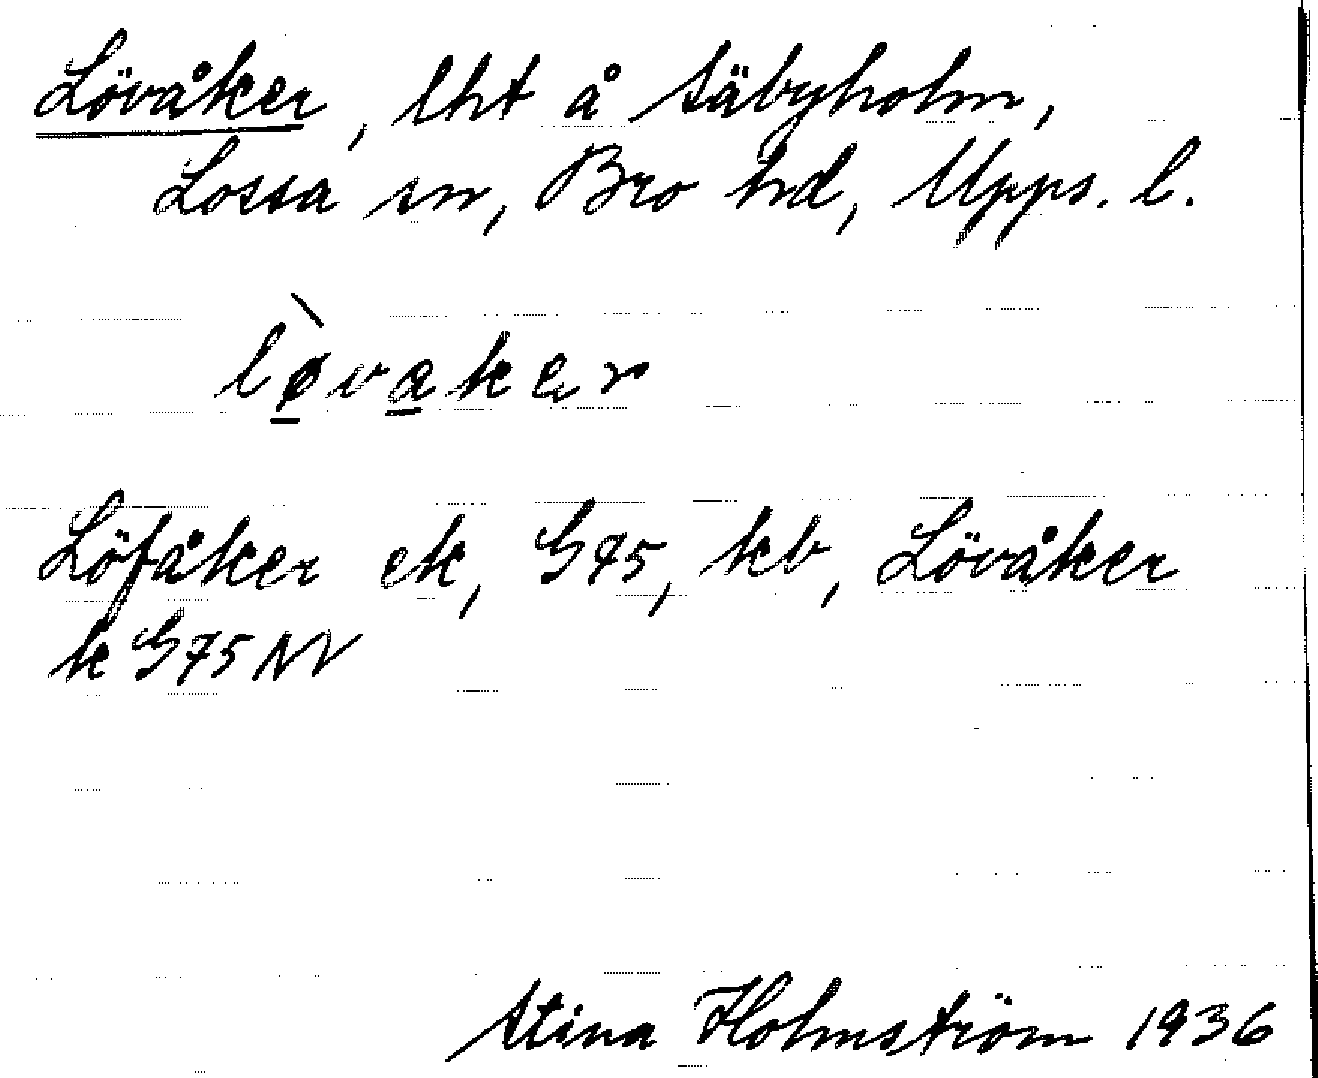 Lövåker, lht å Säbyholm,
Lossa sn, Bro hd, Upps. l.
lø̀vakər
Löfåker ek, G75, kb, Lövåker
k G75 NV
Stina Holmström 1936